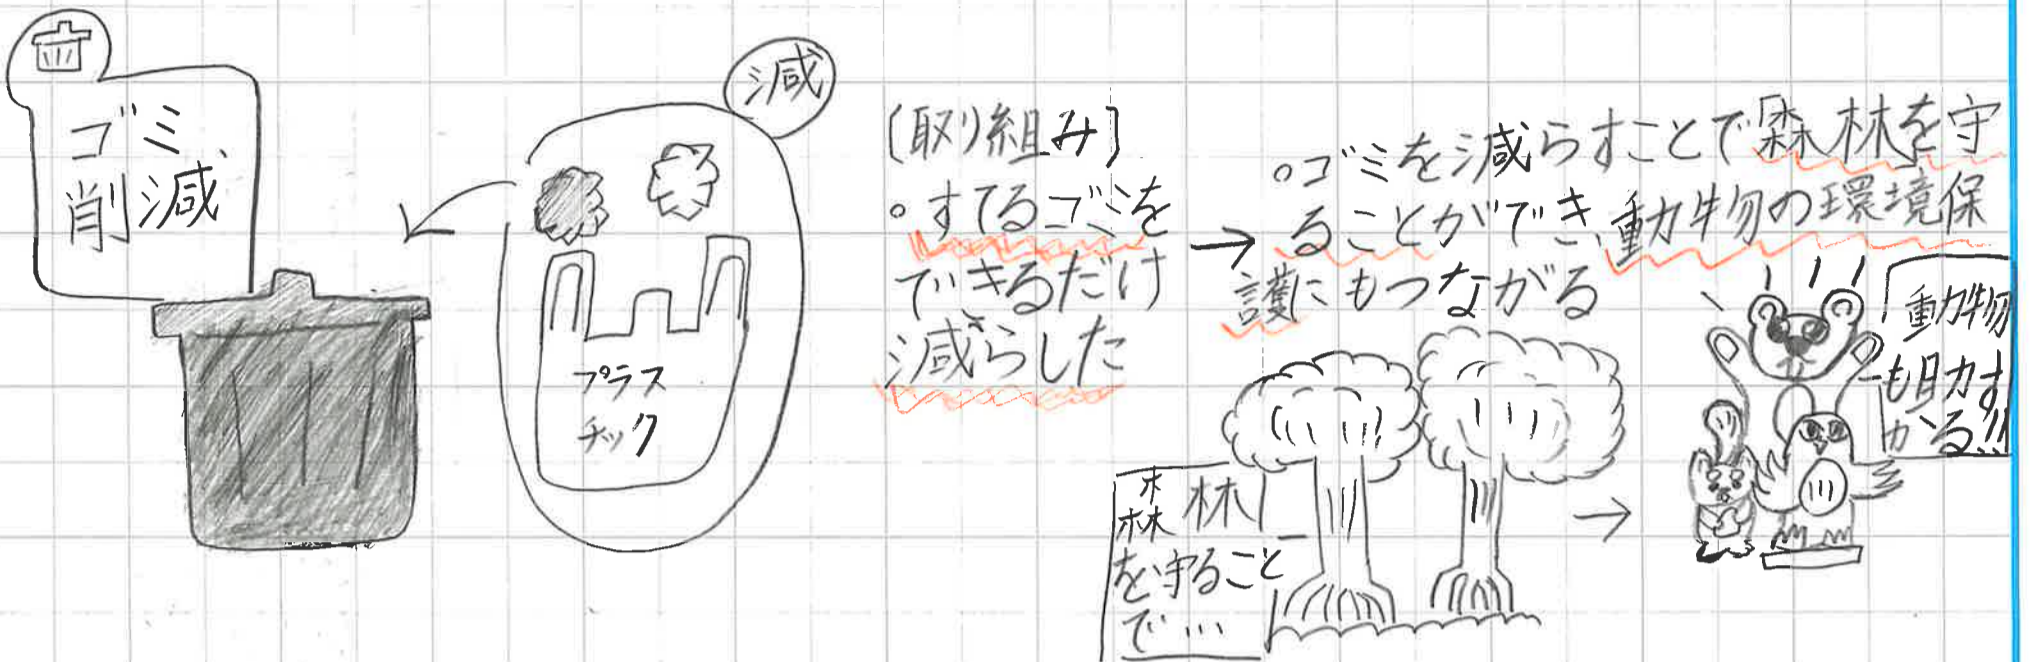 ゴミ
削減
減
プラス
チック
[取り組み]
。すてるゴミを
できるだけ
減らした
→
。ゴミを減らすことで森林を守
ることができ、動物の環境保
護にもつながる
森林
を守ること
で…
→
動物
も助
かる!!